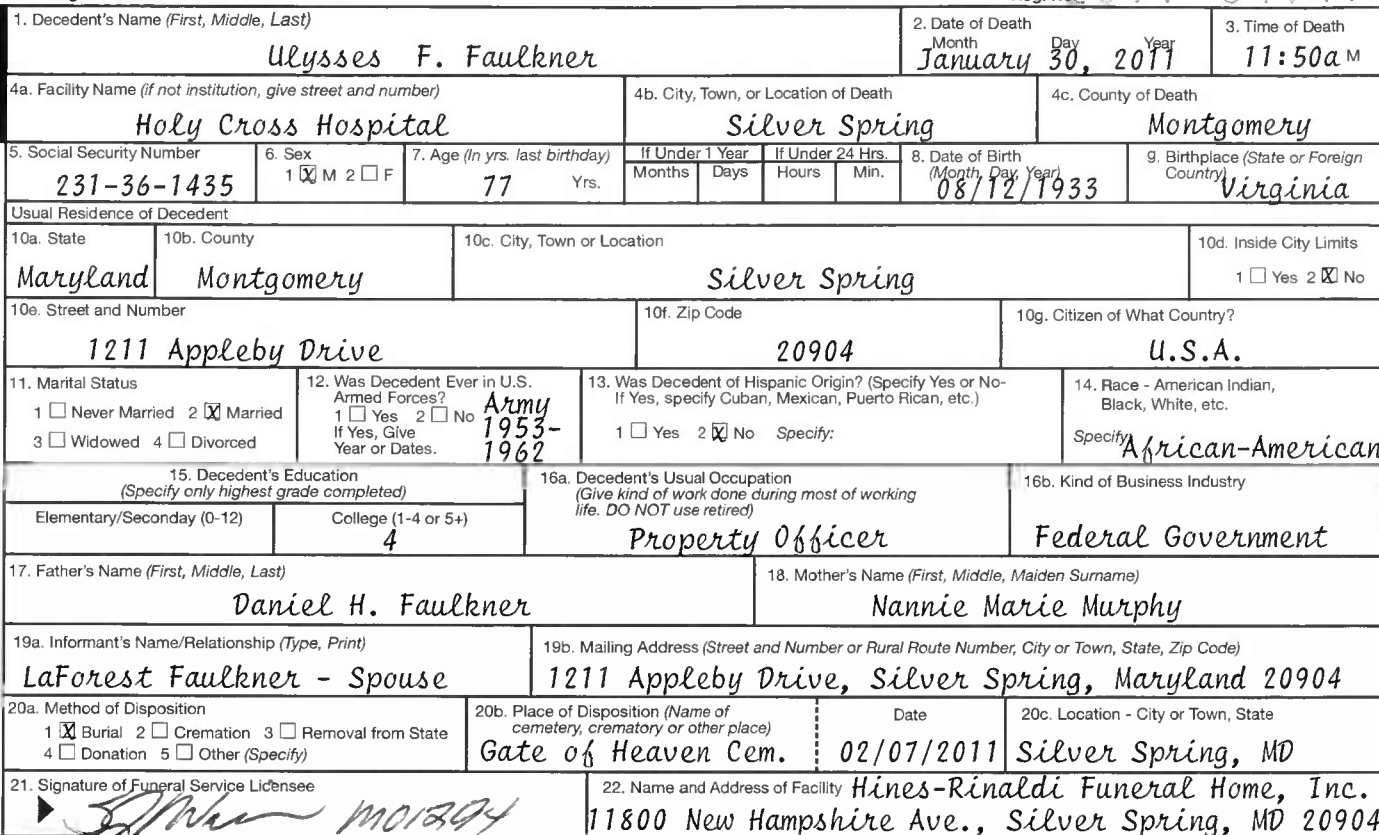 1. Decedent's Name (First, Middle, Last)
Ulysses F. Faulkner
2. Date of Death
Month Day Year
January 30, 2011
3. Time of Death
11:50a M
4a. Facility Name (if not institution, give street and number)
Holy Cross Hospital
4b. City, Town, or Location of Death
Silver Spring
4c. County of Death
Montgomery
5. Social Security Number
231-36-1435
6. Sex
1 ☒ M 2 ☐ F
7. Age (In yrs. last birthday)
77 Yrs.
If Under 1 Year
Months Days
If Under 24 Hrs.
Hours Min.
8. Date of Birth
(Month, Day, Year)
08/12/1933
9. Birthplace (State or Foreign
Country)
Virginia
Usual Residence of Decedent
10a. State
Maryland
10b. County
Montgomery
10c. City, Town or Location
Silver Spring
10d. Inside City Limits
1 ☐ Yes 2 ☒ No
10e. Street and Number
1211 Appleby Drive
10f. Zip Code
20904
10g. Citizen of What Country?
U.S.A.
11. Marital Status
1 ☐ Never Married 2 ☒ Married
3 ☐ Widowed 4 ☐ Divorced
12. Was Decedent Ever in U.S.
Armed Forces?
1 ☐ Yes 2 ☐ No
If Yes, Give
Year or Dates.
Army
1953-
1962
13. Was Decedent of Hispanic Origin? (Specify Yes or No-
If Yes, specify Cuban, Mexican, Puerto Rican, etc.)
1 ☐ Yes 2 ☒ No Specify:
14. Race - American Indian,
Black, White, etc.
Specify African-American
15. Decedent's Education
(Specify only highest grade completed)
Elementary/Seconday (0-12)
College (1-4 or 5+)
4
16a. Decedent's Usual Occupation
(Give kind of work done during most of working
life. DO NOT use retired)
Property Officer
16b. Kind of Business Industry
Federal Government
17. Father's Name (First, Middle, Last)
Daniel H. Faulkner
18. Mother's Name (First, Middle, Maiden Surname)
Nannie Marie Murphy
19a. Informant's Name/Relationship (Type, Print)
LaForest Faulkner - Spouse
19b. Mailing Address (Street and Number or Rural Route Number, City or Town, State, Zip Code)
1211 Appleby Drive, Silver Spring, Maryland 20904
20a. Method of Disposition
1 ☒ Burial 2 ☐ Cremation 3 ☐ Removal from State
4 ☐ Donation 5 ☐ Other (Specify)
20b. Place of Disposition (Name of
cemetery, crematory or other place)
Gate of Heaven Cem.
Date
02/07/2011
20c. Location - City or Town, State
Silver Spring, MD
21. Signature of Funeral Service Licensee
MO1294
22. Name and Address of Facility Hines-Rinaldi Funeral Home, Inc.
11800 New Hampshire Ave., Silver Spring, MD 20904